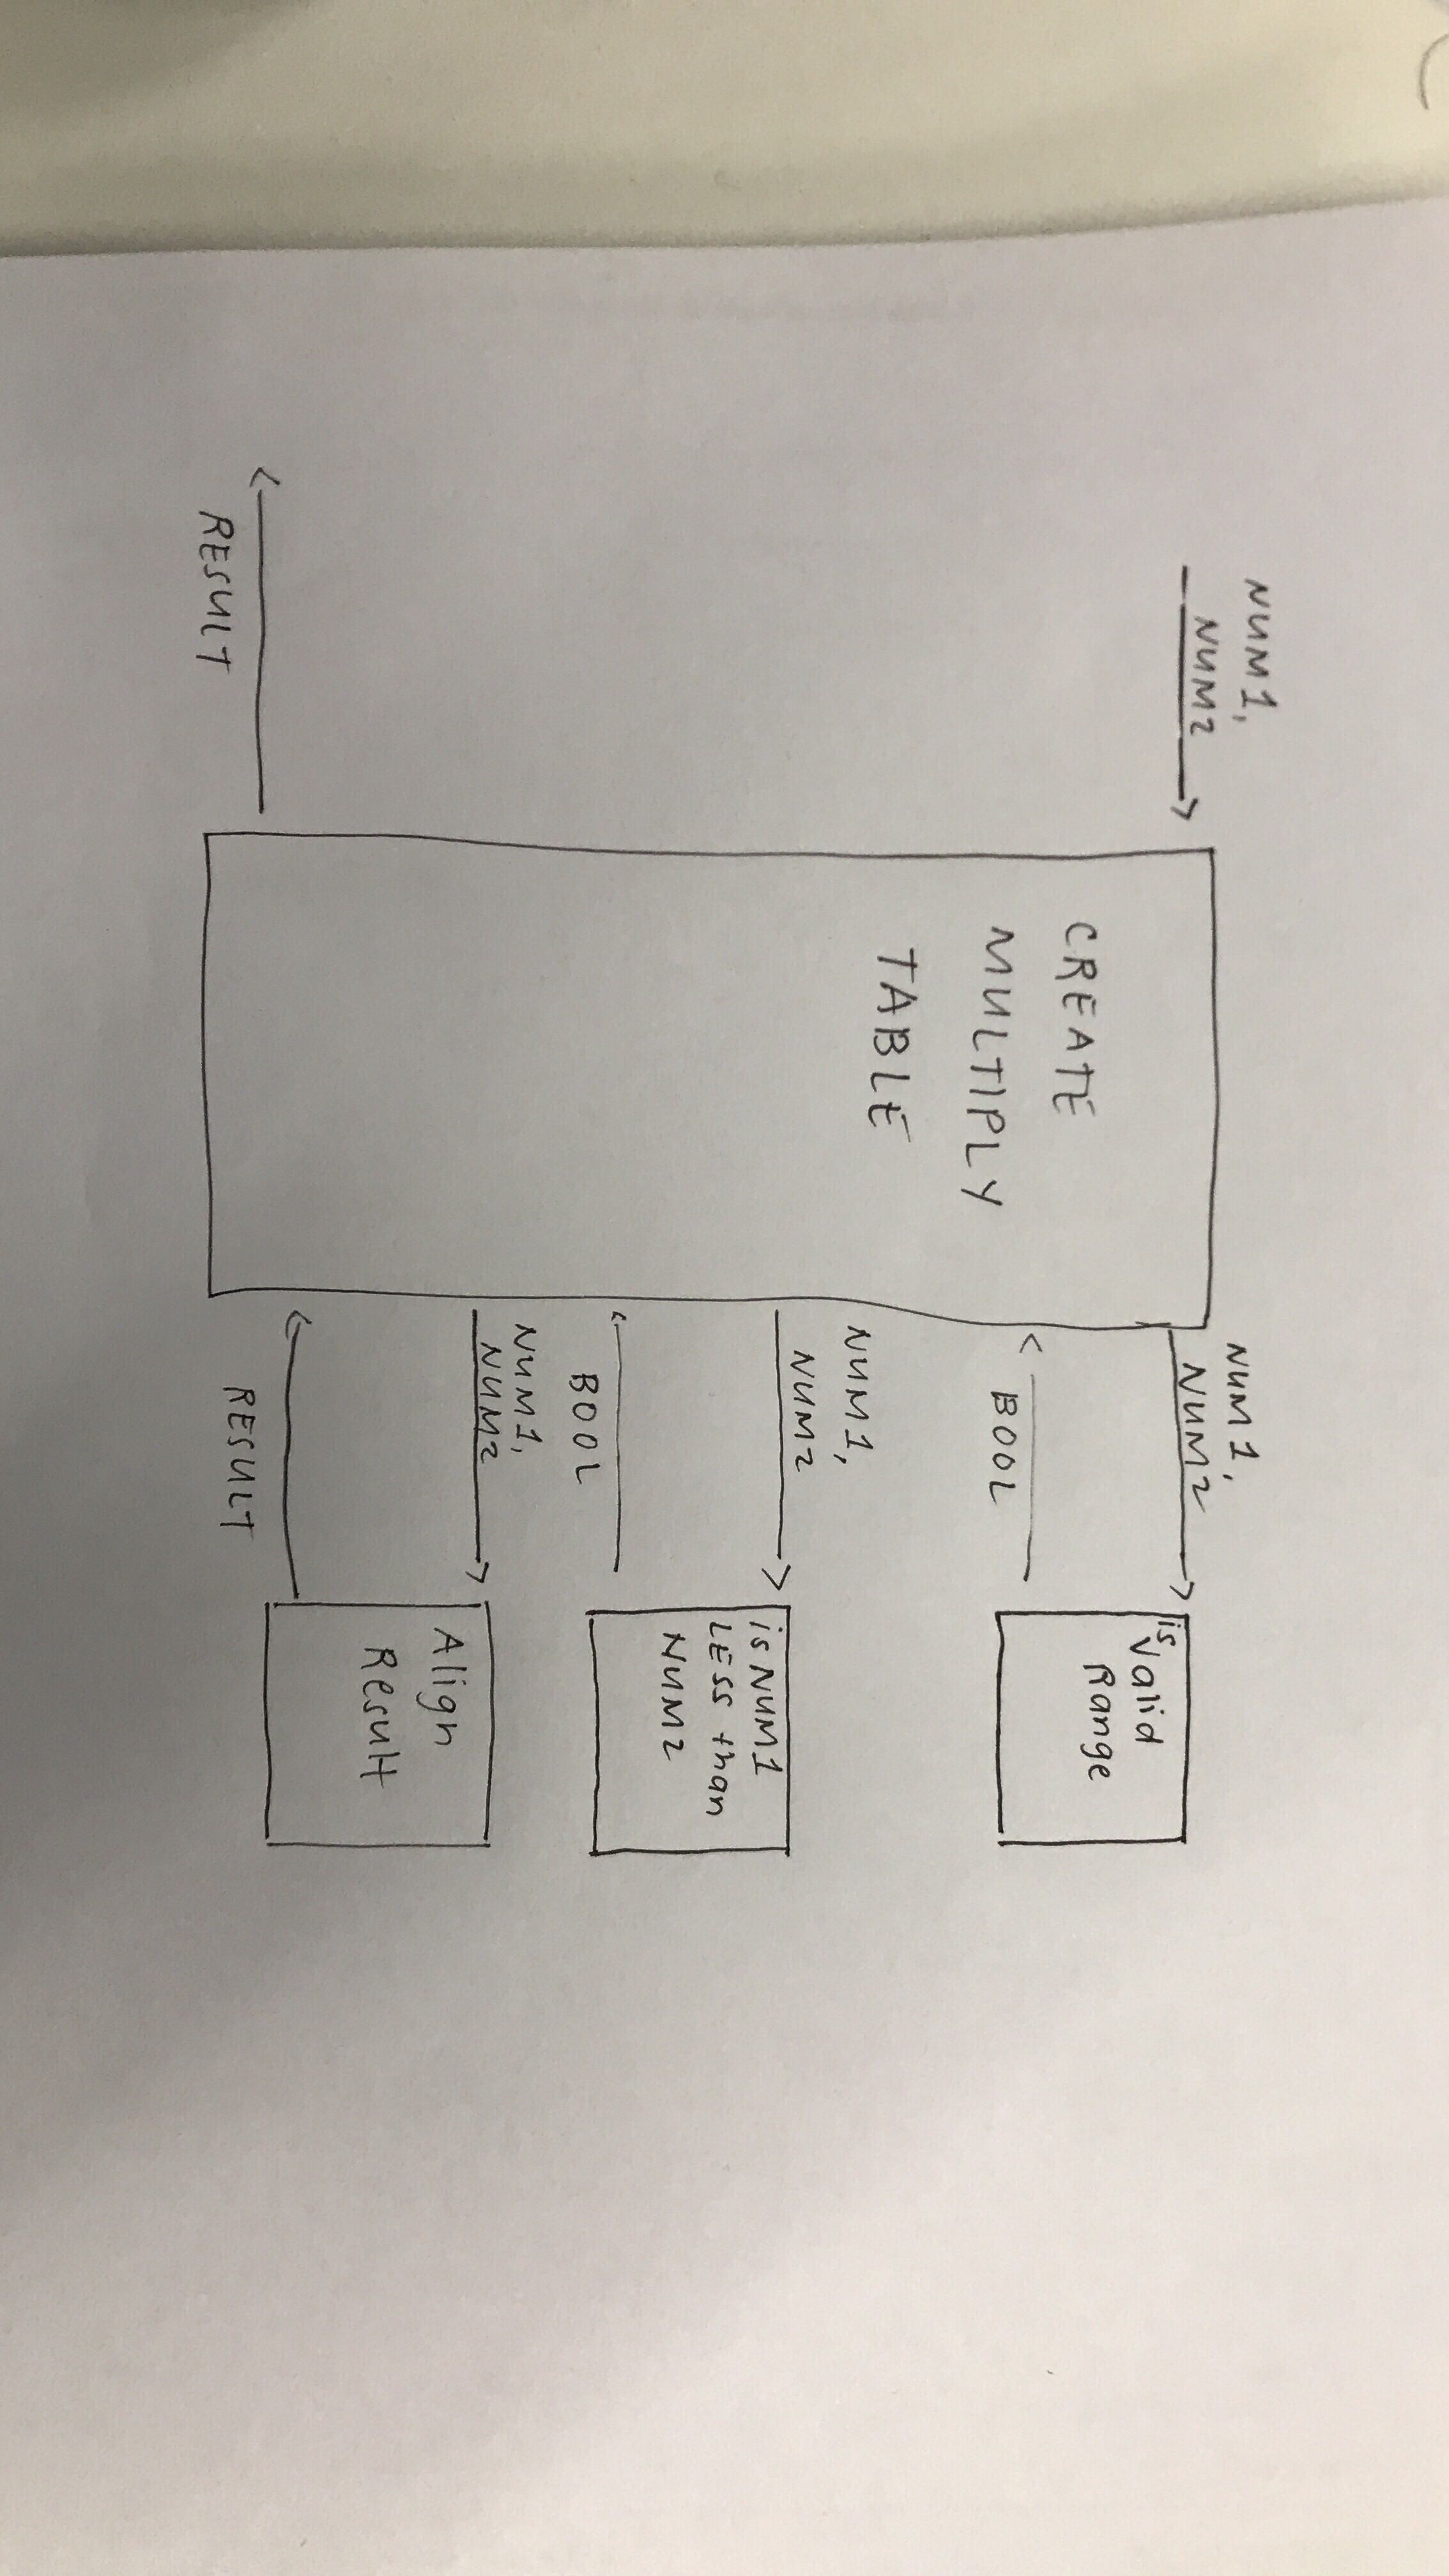 NUM1,
NUM2
CREATE
MULTIPLY
TABLE
RESULT
NUM1,
NUM2
is
Valid
Range
BOOL
NUM1,
NUM2
is NUM1
LESS than
NUM2
BOOL
NUM1,
NUM2
Align
Result
RESULT